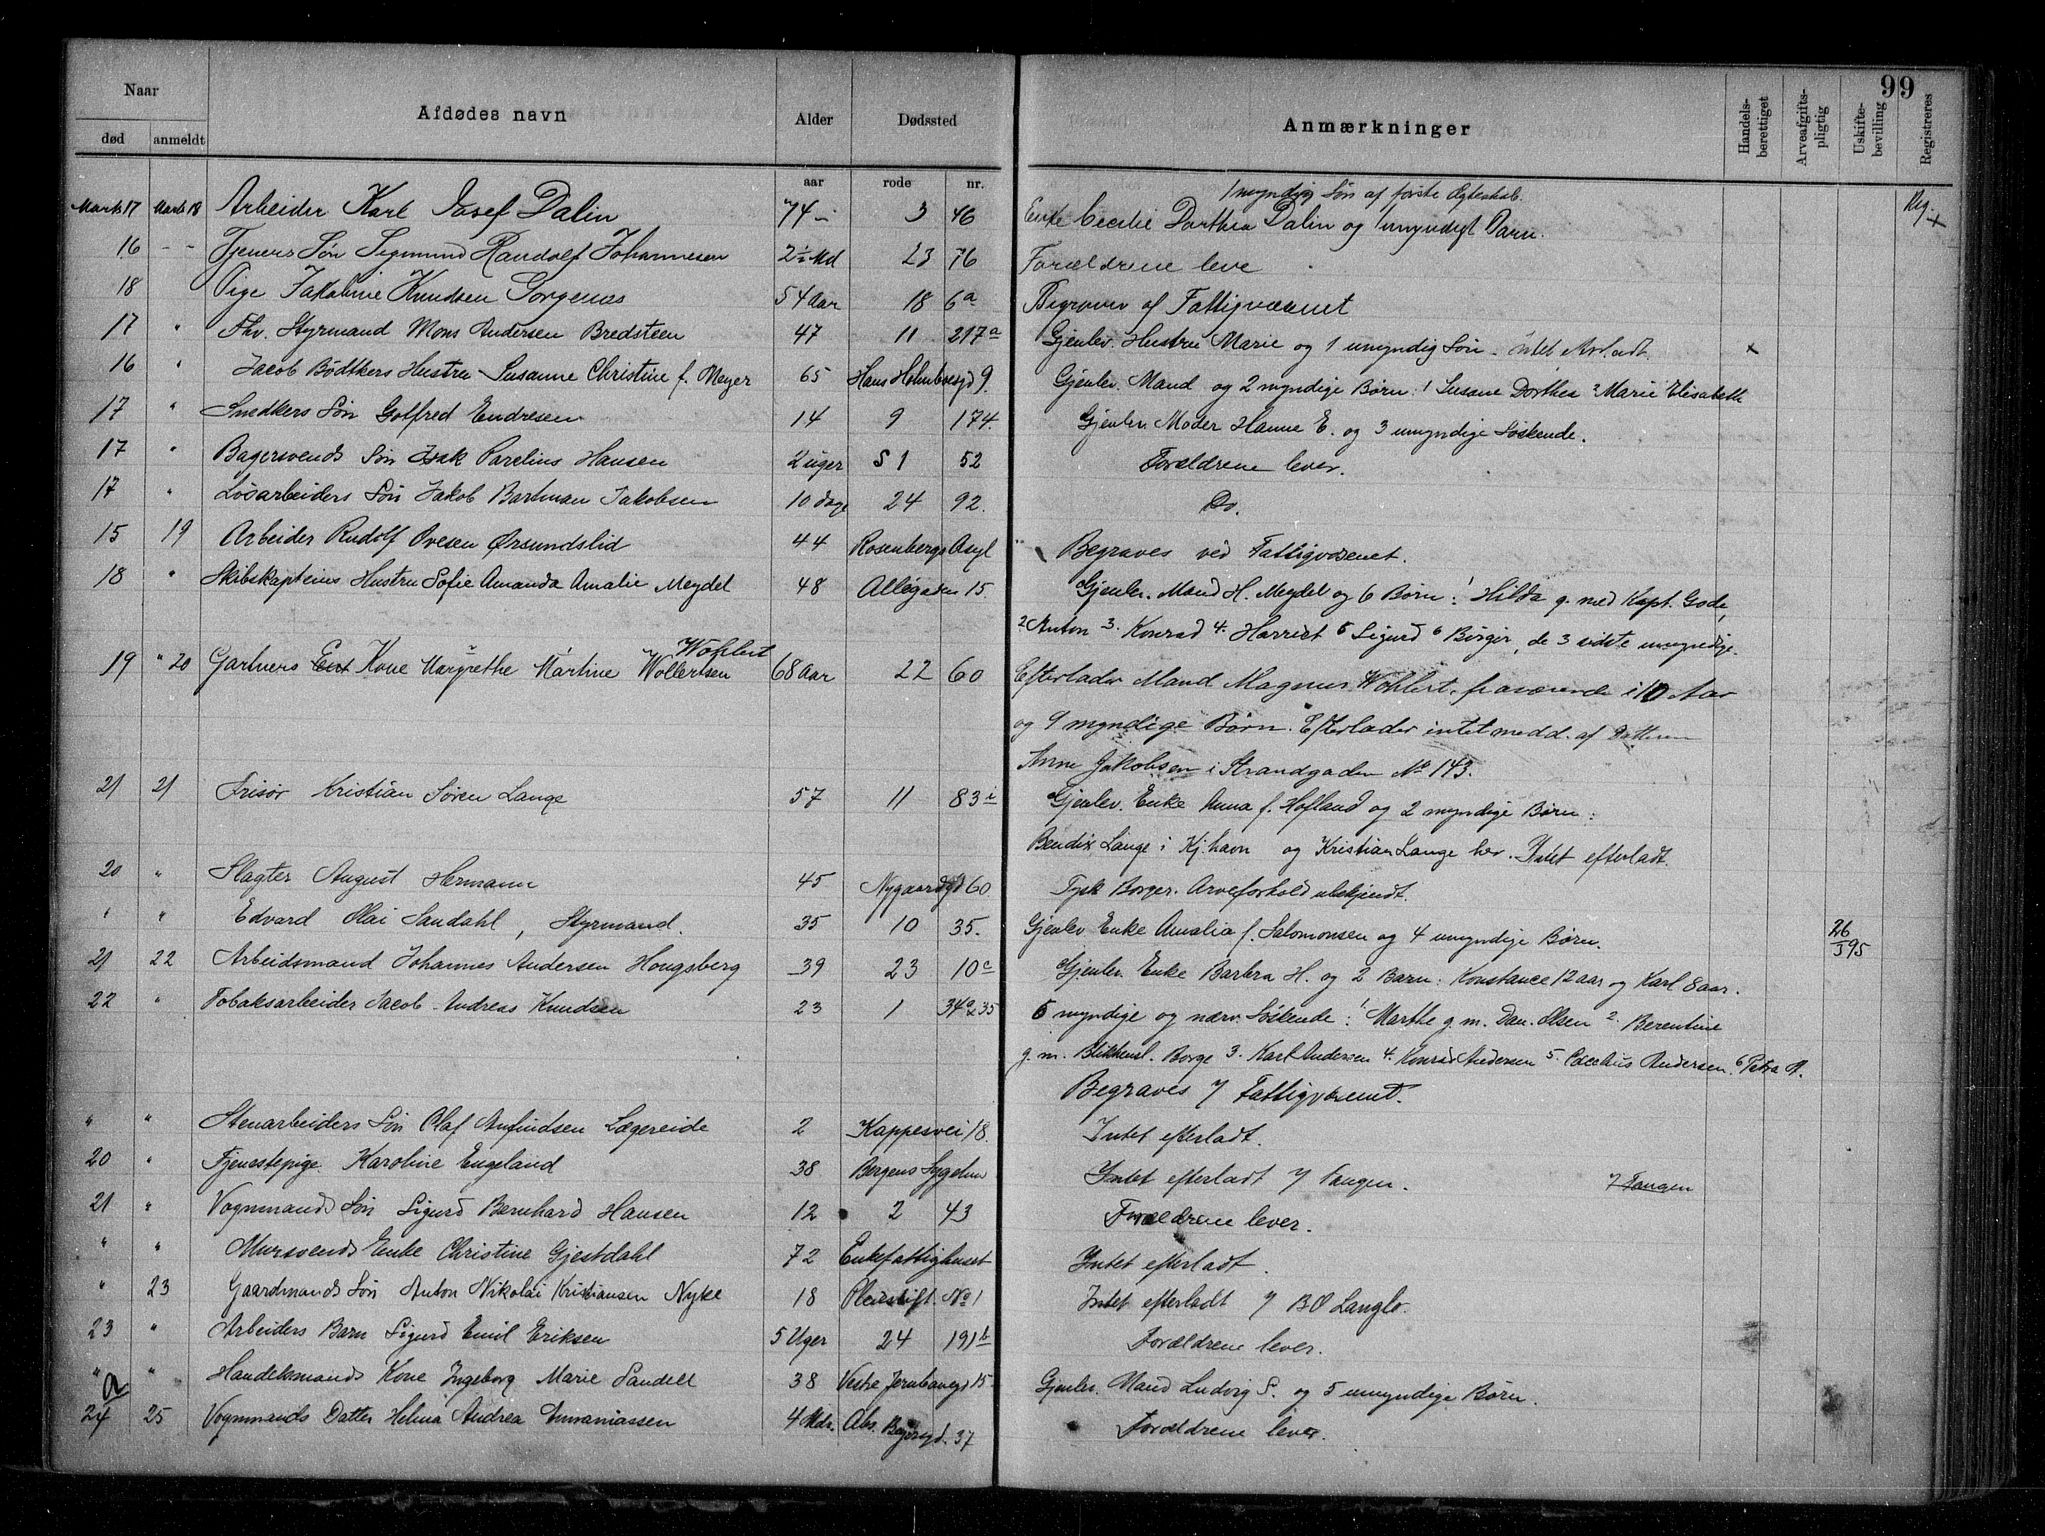 99
Naar
død anmeldt
Afdødes navn
Alder
Dødssted
Anmærkninger
Handels-berettiget
Arveafgifts-pligtig
Uskifte-bevilling
Registreres
aar rode nr.
1 myndig Søn af første Ægteskab.
Marts 17 Marts 18 Arbeider Karl Josef Dalin 74 - 3 46 Enke Cecilie Dorthea Dalin og 1 umyndigt Barn. Reg. +
16 - - Tjeners Søn Sigmund Randolf Johannesen 2½ Md 23 76 Forældrene leve
18 Pige Jakobine Knudsen Sørgenes 54 Aar 18 6a Begraves af Fattigvæsenet
17 " Fhv. Styrmand Mons Andersen Bredsteen 47 11 217a Gjenlev. Hustru Marie og 1 umyndig Søn - intet Avladt. x
16 " Jacob Bødtkers Hustru Susanne Christine f. Meyer 65 Hans Holmboesgd 9. Gjenlev. Mand og 2 myndige Børn: 1 Susane Dorthea 2 Marie Elisabeth
17 " Snedkers Søn Gotfred Endresen 14 9 174. Gjenlev. Moder Hanne E. og 3 umyndige Søskende.
17 " Bagersvends Søn Isak Parelius Hansen 2 uger S 1 52 Forældrene lever.
17 " Løsarbeiders Søn Jakob Bartman Jakobsen 10 dage 24 92. Do.
15 19 Arbeider Rudolf Ovesen Ørsundslid 44 Rosenbergs Asyl Begraves ved Fattigvæsenet.
18 " Skibskapteins Hustru Sofie Amanda Amalie Meydel 48 Allégaden 15 Gjenlev. Mand H. Meydel og 6 Børn: 1 Hilda g. med Kapt. Gode,
2 Anton 3. Konrad 4. Harriet 5 Sigurd 6 Børger, de 3 sidste umyndige.
Wohlert
19 " 20 Gartners Enk Kone Margrethe Martine Wollertsen 68 Aar 22 60 Efterlader Mand Magnus Wohlert, fraværende i 10 Aar
og 9 myndige Børn. Efterlader intet medd. af Datteren
Anne Jakobsen i Strandgaden No 143.
21 21 Frisør Kristian Søren Lange 57 11 83i Gjenlev. Enke Anna f. Hofland og 2 myndige Børn:
Bendix Lange i Kj.havn og Kristian Lange her. Intet efterladt.
20 " Slagter August Hermann 45 Nygaardsgd 60 Tysk Borger. Arveforhold ubekjendt.
" " Edvard Olai Sandahl, Styrmand. 35 10 35. Gjenlev Enke Amalia f. Salomonsen og 4 umyndige Børn. 26/5 95
21 22 Arbeidsmand Johannes Andersen Hougsberg 39 23 10c Gjenlev. Enke Barbra H. og 2 Barn: Konstance 12 aar og Karl 8 aar.
22 " Tobaksarbeider Jacob Andreas Knudsen 23 1 34a & 35 6 myndige og nærv. Søskende: 1 Marthe g. m. Dan. Olsen 2. Berentine
g. m. Blikkensl. Borge 3. Karl Andersen 4. Konrad Andersen 5. Andersen. 6 Petra A.
Begraves / Fattigvæsenet.
" " Stenarbeiders Søn Olaf Anfindsen Lægereide 2 Kappesvei 18. Intet efterladt.
20 " Tjenestepige Karoline Engeland 38 Bergens Sygehus Intet efterladt / Tangen. / Tangen
21 " Vognmands Søn Sigurd Bernhard Hansen 12 2 43 Forældrene lever.
" " Mursvends Enke Christine Gjestdahl 72 Enkefattighuset Intet efterladt.
" 23 Gaardmands Søn Anton Nikolai Kristiansen Nyke 18 Pleiestift. No 1 Intet efterladt / BO Langlo.
23 " Arbeiders Barn Sigurd Emil Eriksen 5 Uger 24 191b Forældrene lever.
" " Handelsmands Kone Ingeborg Marie Sandell 38 Vestre Jernbanegd 15 Gjenlev. Mand Ludvig S. og 5 umyndige Børn.
24 25 Vognmands Datter Helma Andrea Annaniassen 4 Mdr. Abs. Beyersgd. 37 Forældrene lever.